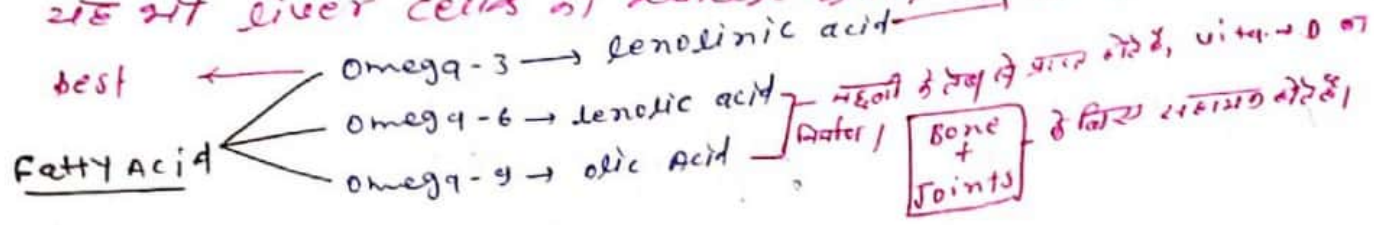 यह भी liver cells
best ← Omega-3 → lenolinic acid
Omega-6 → lenolic acid
Fatty Acid
Omega-9 → olic Acid
मछली के तेल से प्राप्त होते हैं, vita. → D का
निर्माण / Bone + Joints के लिए सहायक होते हैं।